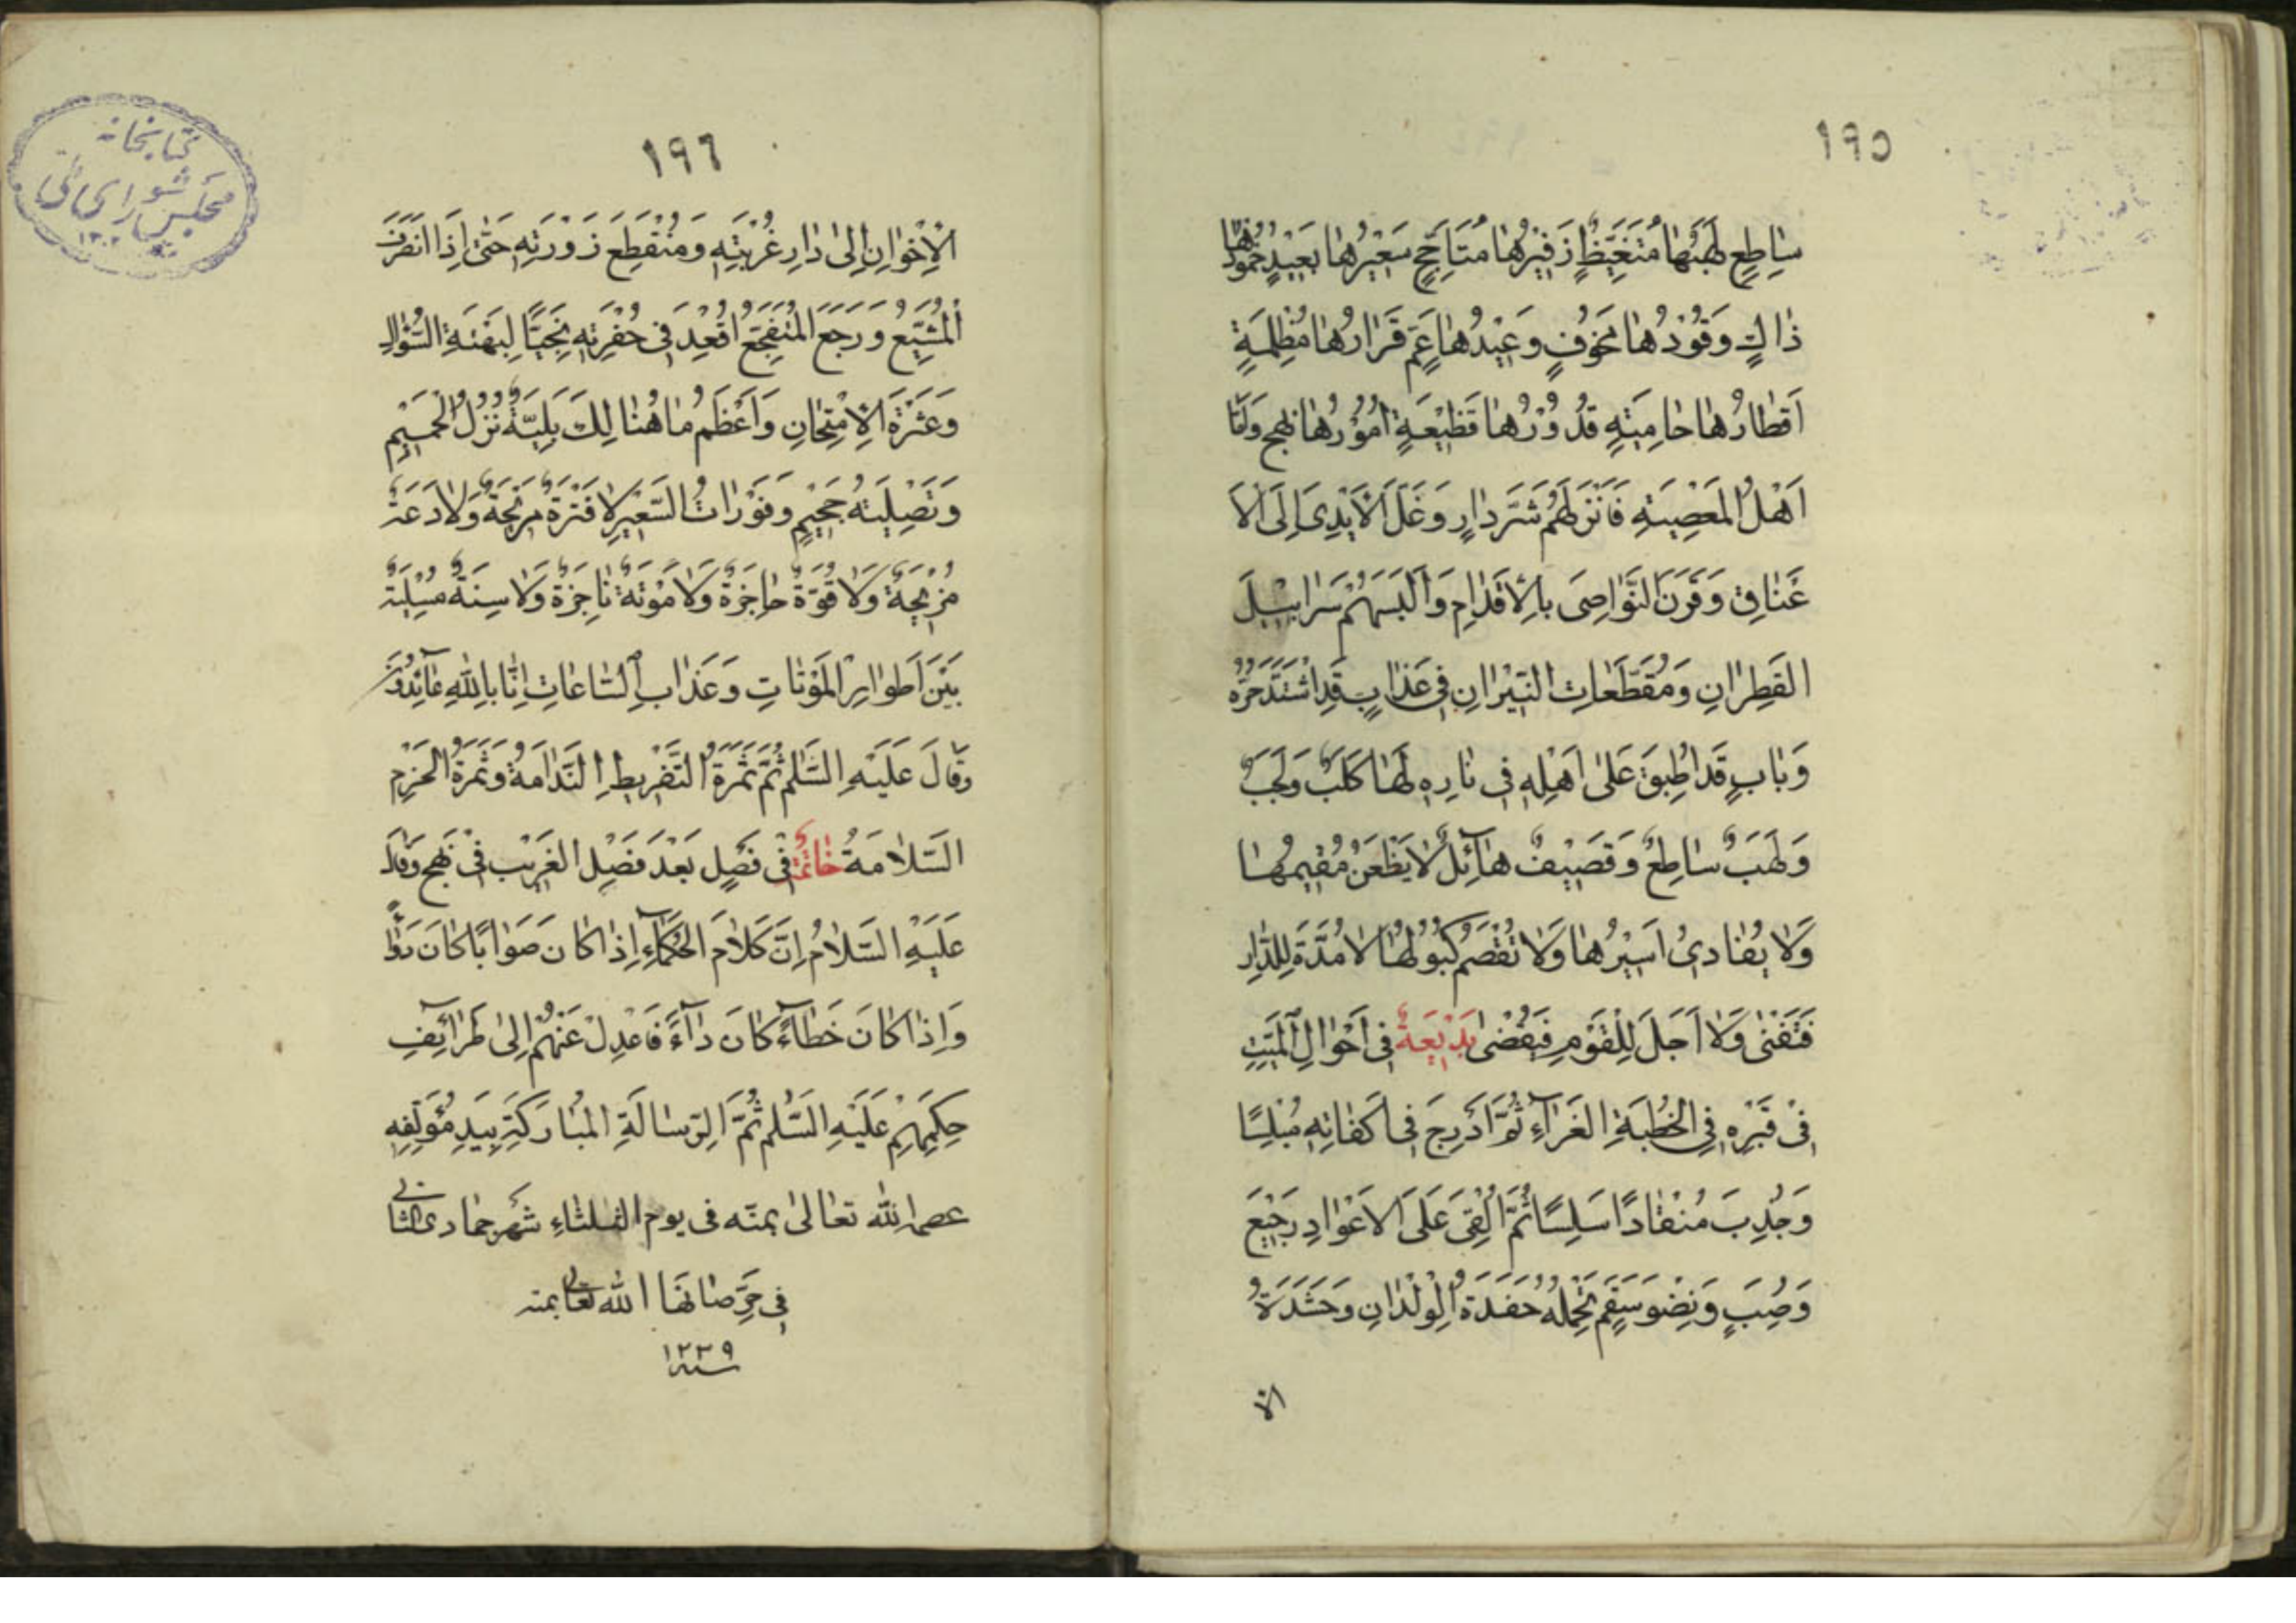 ١٩٥
سٰاطِعٍ لَهَبُهٰا مُتَغَيِّظٍ زَفيرُهٰا مُتَاَجِّجٍ سَعيرُهٰا بَعيدٍ خُمُودُهٰا
ذٰاكٍ وَقُودُهٰا مَخُوفٍ وَعيدُهٰا عَمٍ قَرٰارُهٰا مُظْلِمَةٍ
اَقْطٰارُهٰا حٰامِيَةٍ قُدُورُهٰا فَظيعَةٍ اُمُورُهٰا نهج وَاَمّٰا
اَهْلُ الْمَعْصِيَةِ فَاَنْزَلَهُمْ شَرَّ دٰارٍ وَغَلَّ الْاَيْدِىَ اِلَى الْاَ
عْنٰاقِ وَقَرَنَ النَّوٰاصِىَ بِالْاَقْدٰامِ وَاَلْبَسَهُمْ سَرٰابيلَ
القَطِرٰانِ وَمُقَطَّعٰاتِ النّيرٰانِ فى عَذٰابٍ قَدِ اشْتَدَّ حَرُّهُ
وَبٰابٍ قَدْ اُطْبِقَ عَلىٰ اَهْلِهِ فى نٰارٍ لَهٰا كَلَبٌ وَلَجَبٌ
وَلَهَبٌ سٰاطِعٌ وَقَصيفٌ هٰآئِلٌ لٰا يَظْعَنُ مُقيمُهٰا
وَلٰا يُفٰادىٰ اَسيرُهٰا وَلٰا تُفْصَمُ كُبُولُهٰا لٰا مُدَّةَ لِلدّٰارِ
فَتَفْنىٰ وَلٰا اَجَلَ لِلْقَوْمِ فَيُقْضىٰ بَديعَةٌ فى اَحْوٰالِ الْمَيِّتِ
فى قَبْرِهِ فِى الْخُطْبَةِ الغَرّٰآءِ ثُمَّ اُدْرِجَ فى اَكْفٰانِهِ مُبْلِسًا
وَجُذِبَ مُنْقٰادًا سَلِسًا ثُمَّ اُلْقِىَ عَلَى الْاَعْوٰادِ رَجيعَ
وَصَبٍ وَنِضْوَ سَقَمٍ تَحْمِلُهُ حَفَدَةُ الْوِلْدٰانِ وَحَشَدَةُ
الا
١٩٦
الْاِخْوٰانِ اِلىٰ دٰارِ غُرْبَتِهِ وَمُنْقَطِعِ زَوْرَتِهِ حَتّىٰ اِذَا انْصَرَفَ
الْمُشَيِّعُ وَرَجَعَ الْمُتَفَجِّعُ اُقْعِدَ فى حُفْرَتِهِ نَجِيًّا لِبَهْتَةِ السُّؤٰالِ
وَعَثْرَةِ الْاِمْتِحٰانِ وَاَعْظَمُ مٰا هُنٰالِكَ بَلِيَّةً نُزُلُ الْحَميمِ
وَتَصْلِيَتهُ جَحيمٍ وَفَوْرٰاتُ السَّعيرِ لٰا فَتْرَةٌ مُريحَةٌ وَلٰا دَعَةٌ
مُزيحَةٌ وَلٰا قُوَّةٌ حٰاجِزَةٌ وَلٰا مَوْتَةٌ نٰاجِزَةٌ وَلٰا سِنَةٌ مُسْلِيَةٌ
بَيْنَ اَطْوٰارِ الْمَوْتٰاتِ وَعَذٰابِ السّٰاعٰاتِ اِنّٰا بِاللّٰهِ عٰآئِذُونَ
وَقٰالَ عَلَيْهِ السَّلٰم ثُمَّ ثَمَرَةُ التَّفْريطِ النَّدٰامَةُ وَثَمَرَةُ الْحَزْمِ
السَّلٰامَةُ خٰاتمة فى فَصْلٍ بَعْدَ فَصْلِ الغَريب فى نَهج وَقٰالَ
عَلَيْهِ السَّلٰامُ اِنَّ كَلٰامَ الْحُكَمٰآءِ اِذٰا كٰانَ صَوٰابًا كٰانَ دَوٰآءً
وَاِذٰا كٰانَ خَطٰآءً كٰانَ دٰآءً فَاعْدِلْ عَنْهُمْ اِلىٰ طَرٰآئِفِ
حِكَمِهِمْ عَلَيْهِ السَّلٰم ثُمَّ الرِّسٰالَةِ الْمُبٰارَكَةِ بِيَدِ مُؤَلِّفِهِ
عصمه اللّٰه تعٰالىٰ بمنّه فى يوم الثلثاء شهر جمادى الثانى
فى صانها اللّٰه تعالى بمنه
سنه ١٢٣٩
كتابخانه
مجلس شوراى ملى
١٣٠٢